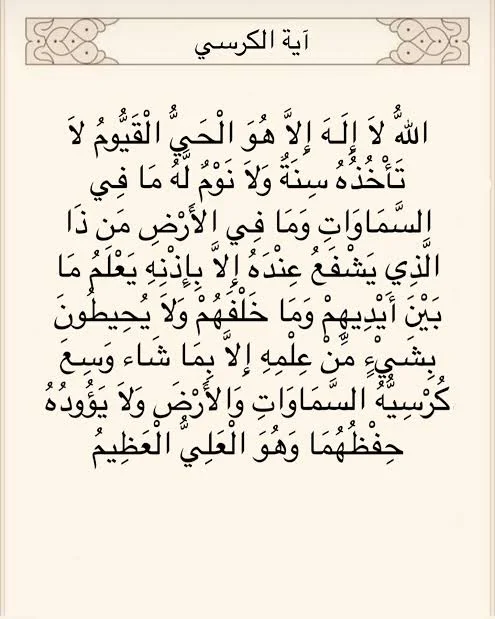 آية الكرسي
اللّهُ لاَ إِلَـهَ إِلاَّ هُوَ الْحَيُّ الْقَيُّومُ لاَ
تَأْخُذُهُ سِنَةٌ وَلاَ نَوْمٌ لَّهُ مَا فِي
السَّمَاوَاتِ وَمَا فِي الأَرْضِ مَن ذَا
الَّذِي يَشْفَعُ عِنْدَهُ إِلاَّ بِإِذْنِهِ يَعْلَمُ مَا
بَيْنَ أَيْدِيهِمْ وَمَا خَلْفَهُمْ وَلاَ يُحِيطُونَ
بِشَيْءٍ مِّنْ عِلْمِهِ إِلاَّ بِمَا شَاء وَسِعَ
كُرْسِيُّهُ السَّمَاوَاتِ وَالأَرْضَ وَلاَ يَؤُودُهُ
حِفْظُهُمَا وَهُوَ الْعَلِيُّ الْعَظِيمُ